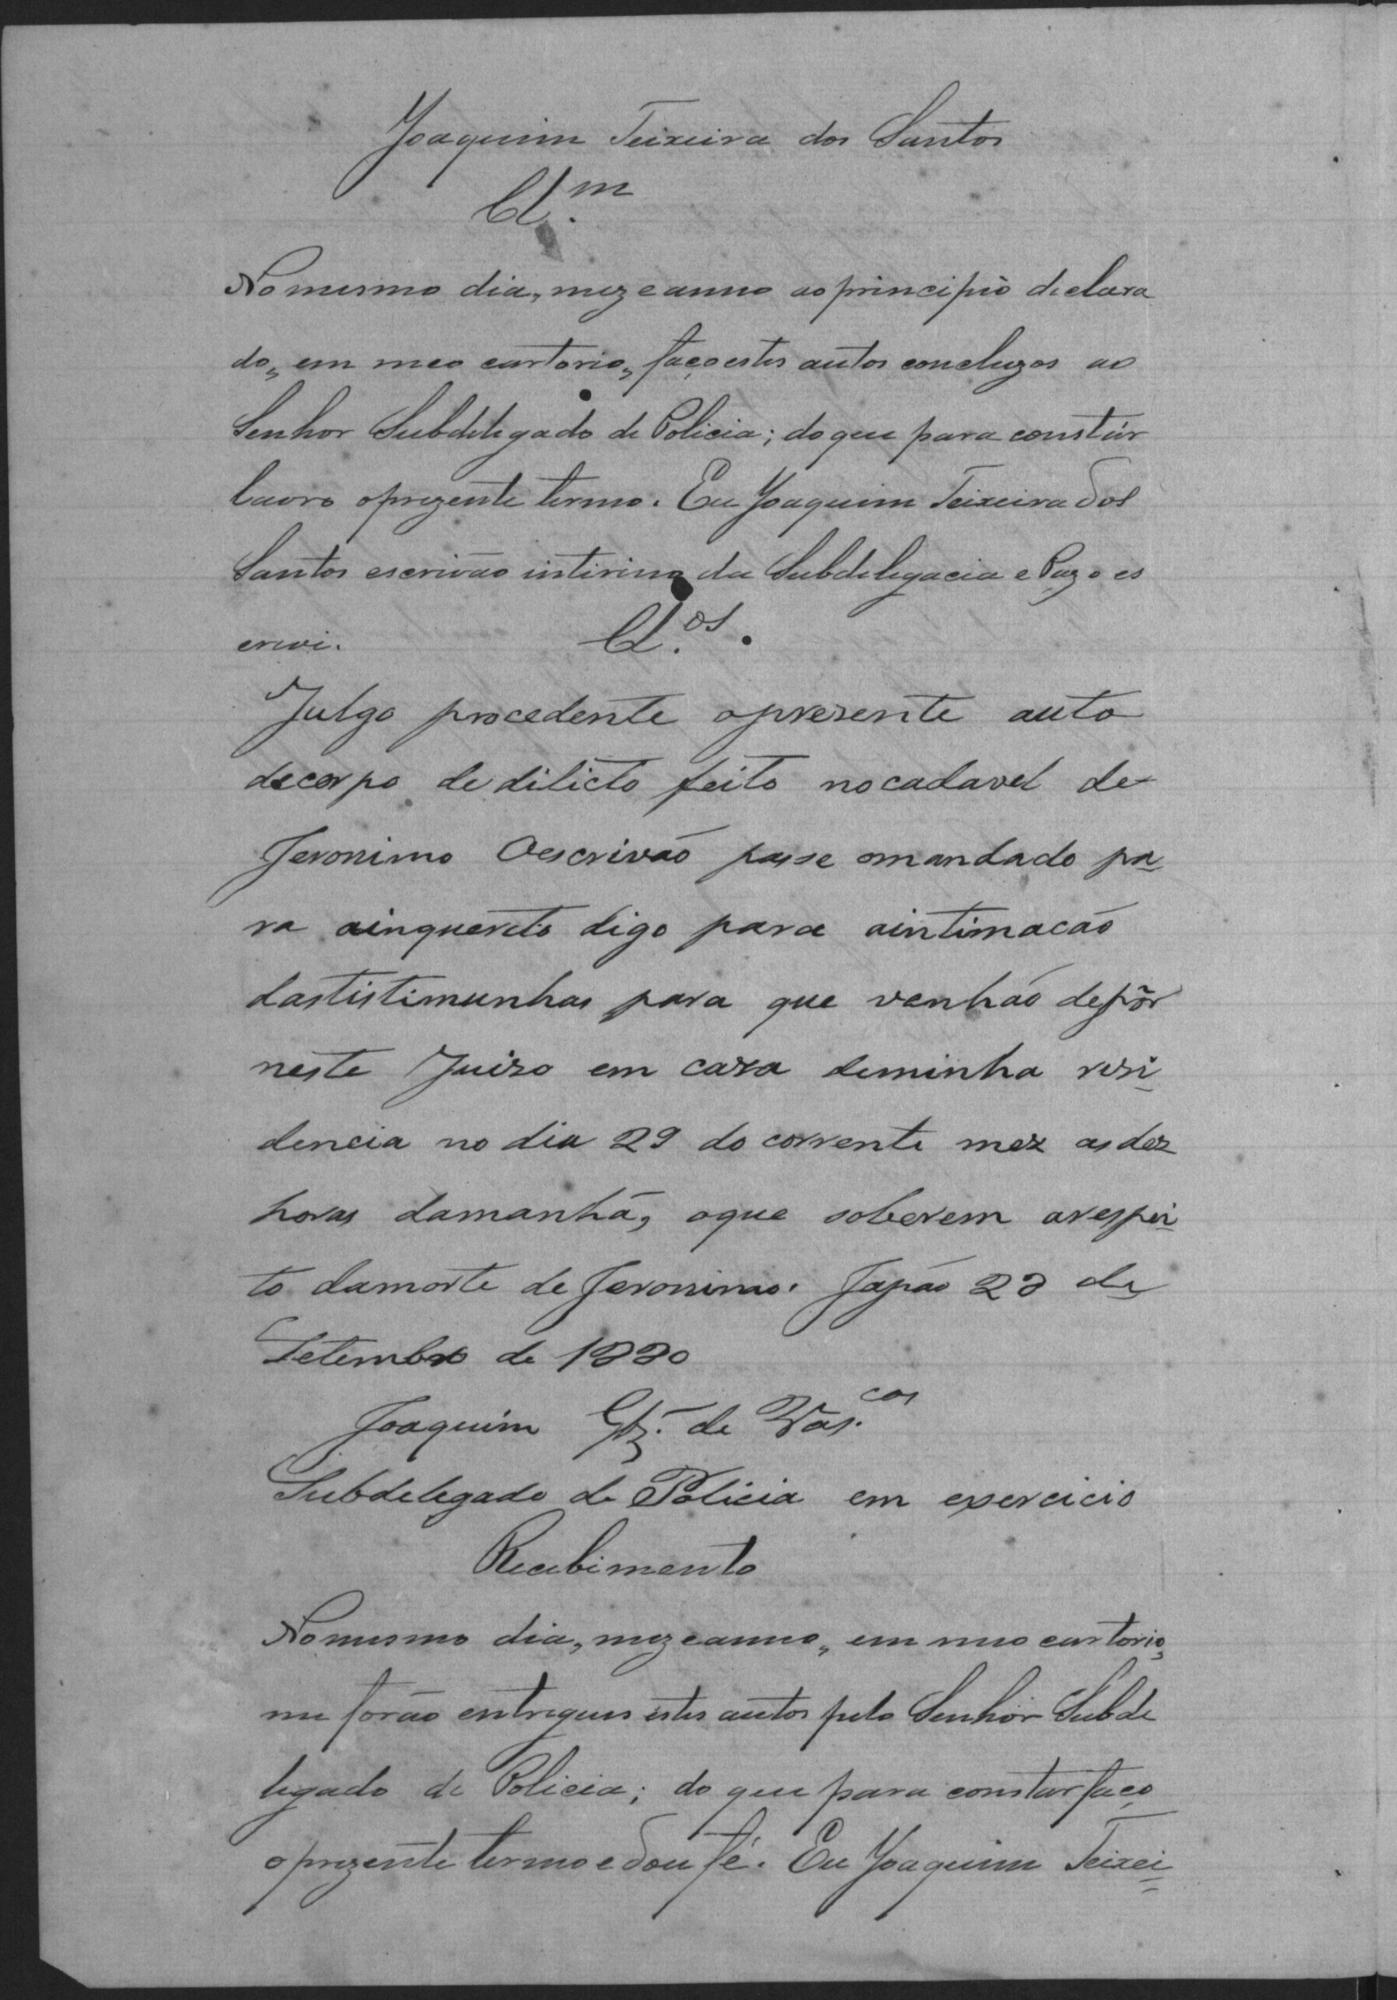 Joaquim Teixeira dos Santos
Cl.m
No mesmo dia, mez e anno ao principio declara
do, em meo cartorio, faço estes autos concluzos ao
Senhor Subdelegado de Policia; do que para constár
lavro o prezente termo. Eu Joaquim Teixeira dos
Santos escrivão intirino da Subdelegacia e Paz o es
crevi. Cl.os.
Julgo procedente opresente auto
decorpo de dilicto feito nocadavel de
Jeronimo Oescrivão passe omandado pa
ra ainquerito digo para aintimacão
dastistimunhas para que venhão depôr
neste Juizo em caza deminha resi
dencia no dia 29 do corrente mez as dez
horas damanhã, oque soberem arespei
to damorte de Jeronimo. Japão 28 de
Setembro de 1880
Joaquim Glz. de Vas.cos
Subdelegado de Policia em exercicio
Recebimento
No mesmo dia, mez e anno, em meo cartorio,
me forão entregues estes autos pelo Senhor Subde
legado de Policia; do que para constar faço
o prezente termo e dou fé. Eu Joaquim Teixei